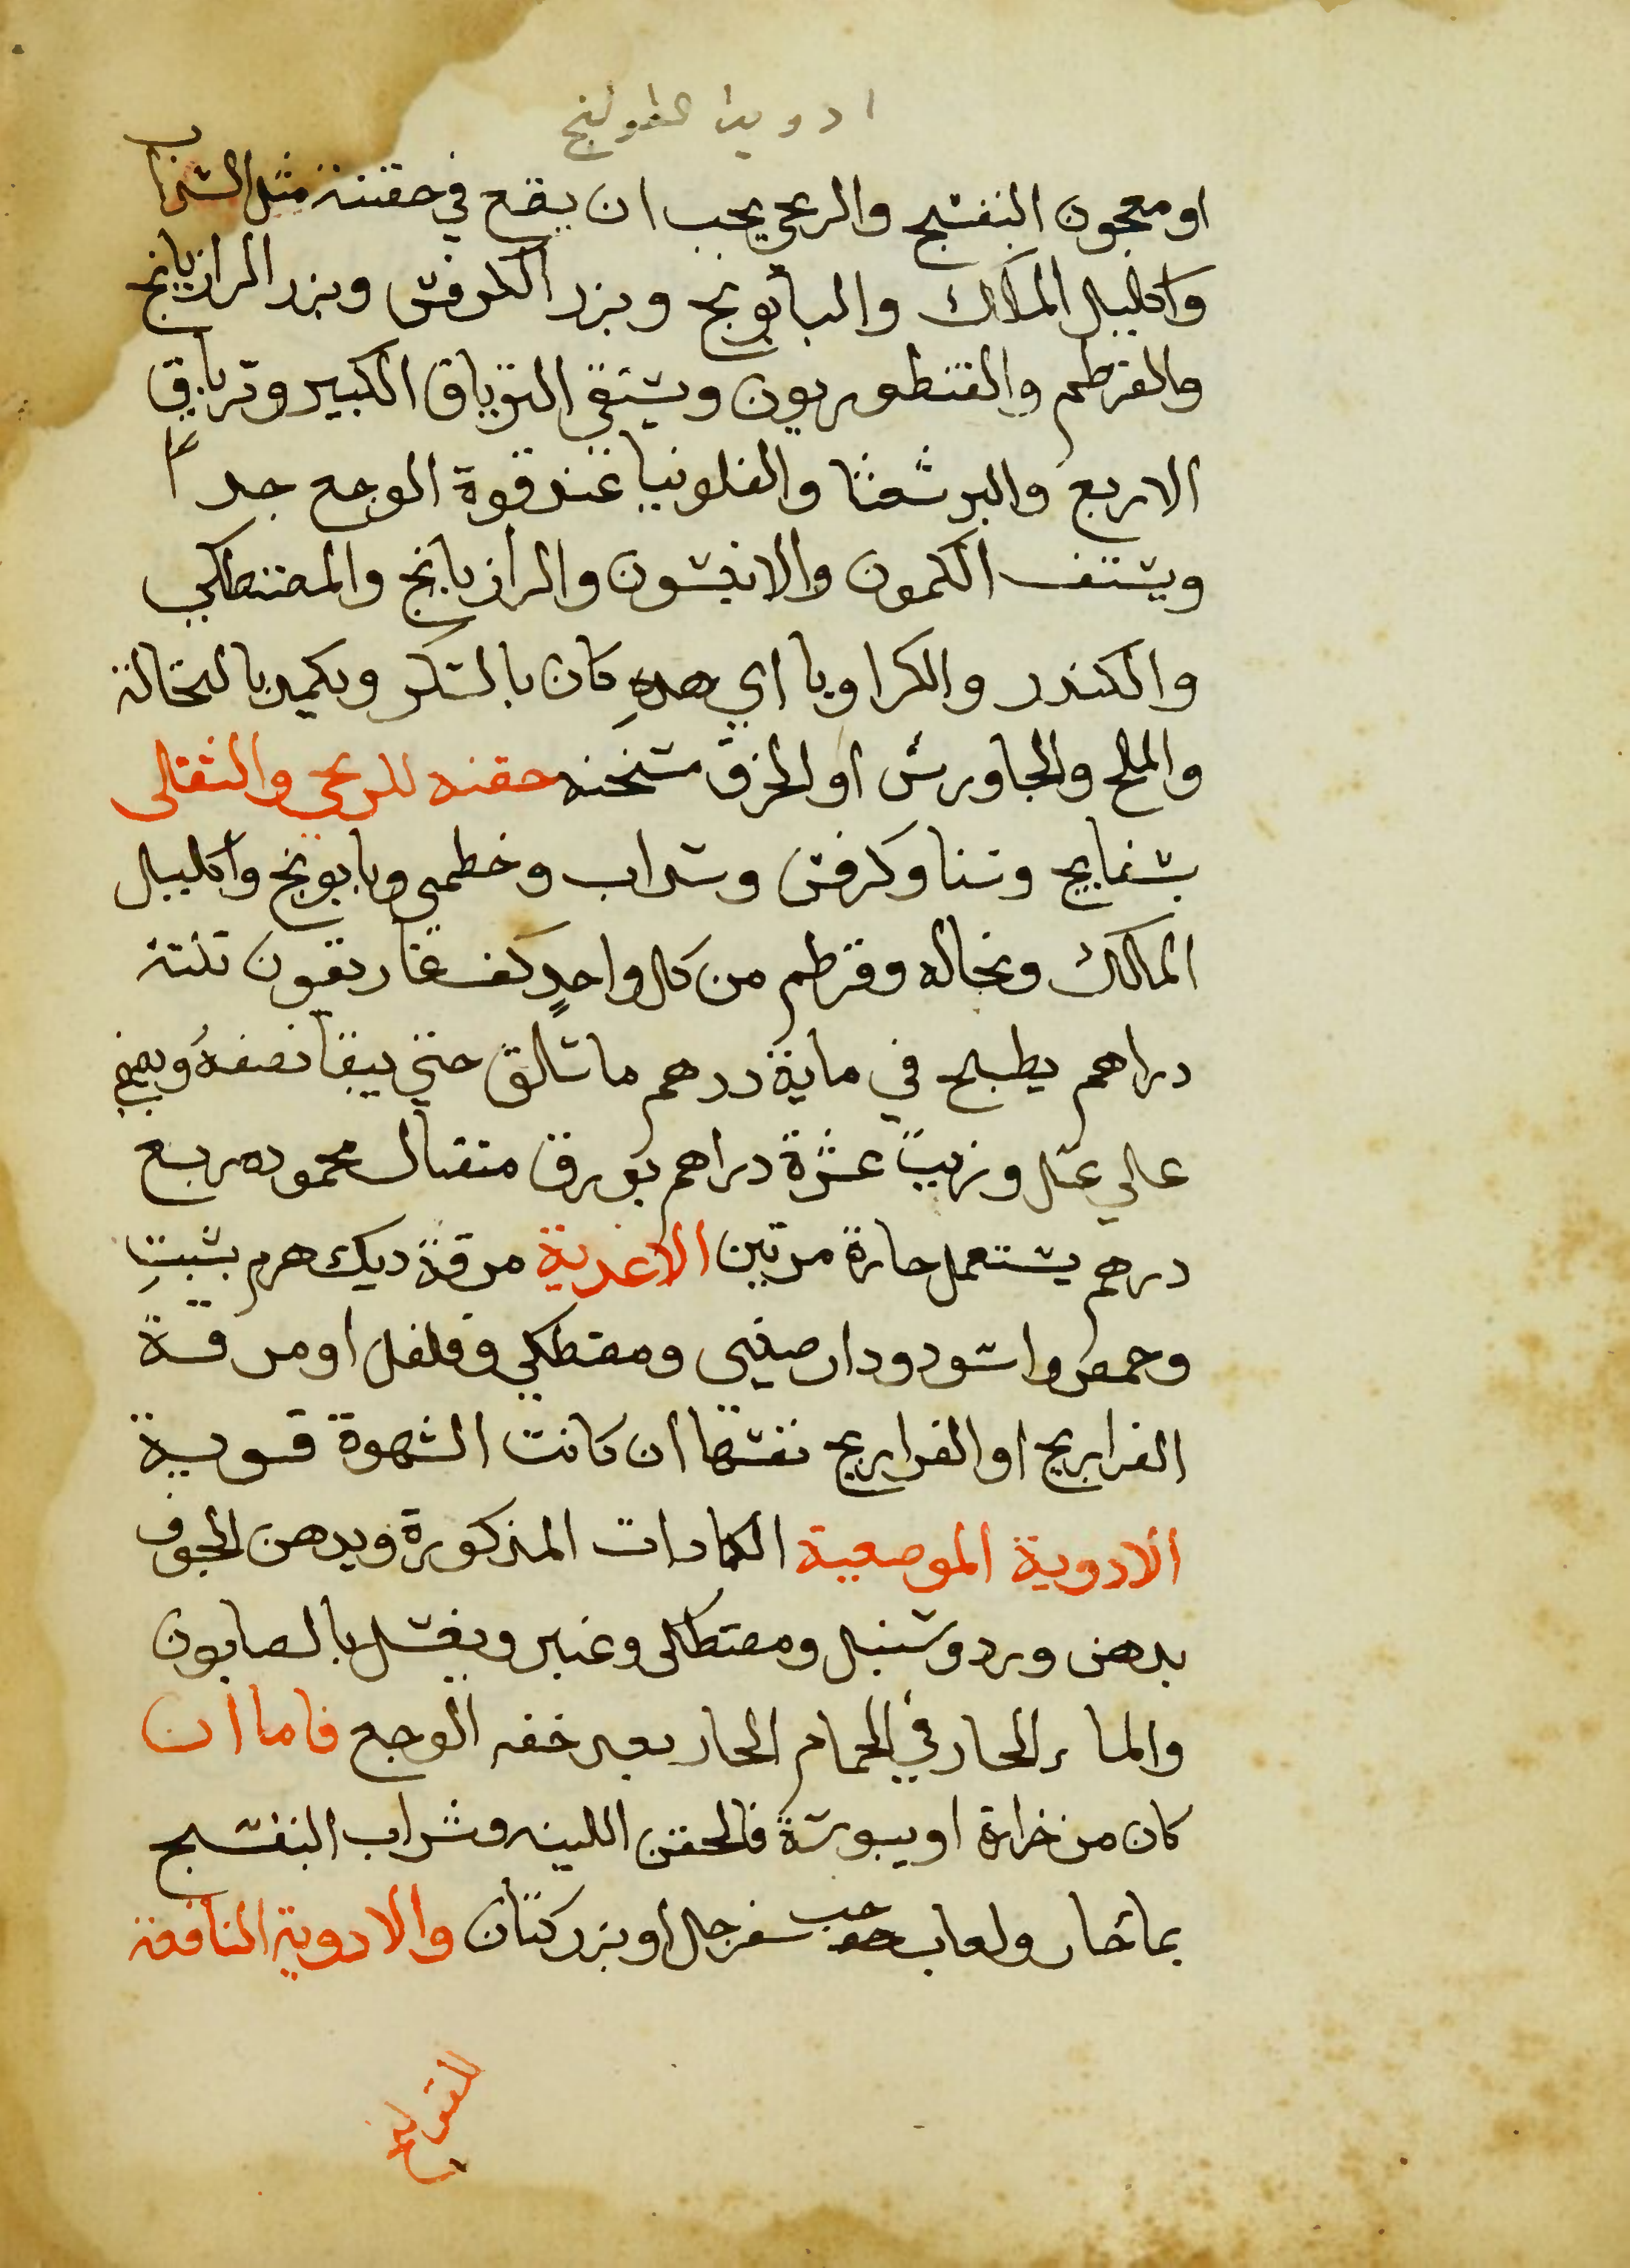 ادوية القولنج
او معجون البنفسج والريحي يجب ان يقع في حقنته مثل السذاب
واكليل الملك والبابونج وبزر الكرفس وبزر الرازيانج
والقرطم والقنطوريون ويسقي الترياق الكبير وترياق
الاربع والبرشعثا والفلونيا عند قوة الوجع جدا
ويستف الكمون والانيسون والرازيانج والمصطكي
والكندر والكراويا اي هذه كان بالسكر ويكمد بالنخالة
والملح والجاورس او الخرق مسخنه حقنه للريحي والثقلى
بسفايج وسنا وكرفس وسداب وخطمي وبابونج واكليل
المالك ونخاله وقرطم من كل واحد كف غاريقون ثلثة
دراهم يطبخ في ماية درهم ما سالق حتي يبقا نصفه ويصفي
علي عسل وزيت عشرة دراهم بورق مثقال محموده ربع
درهم يستعمل حارة مرتين الاغدية مرقة ديك هرم بشبت
وحمص اسود ودارصيني ومصطكي وفلفل او مرقة
الفراريج او الفراريج نفسها ان كانت الشهوة قوية
الادوية الموضعية الكمادات المذكورة ويدهن الجوف
بدهن ورد وسنبل ومصطكى وعنبر ويغسل بالصابون
والماء الحار في الحمام الحار بعد خفه الوجع فاما ان
كان من حرارة او يبوسة فالحقن اللينه وشراب البنفسج
بما حار ولعاب حب سفرجل او بزر كتان والادوية النافعة
للقولنج